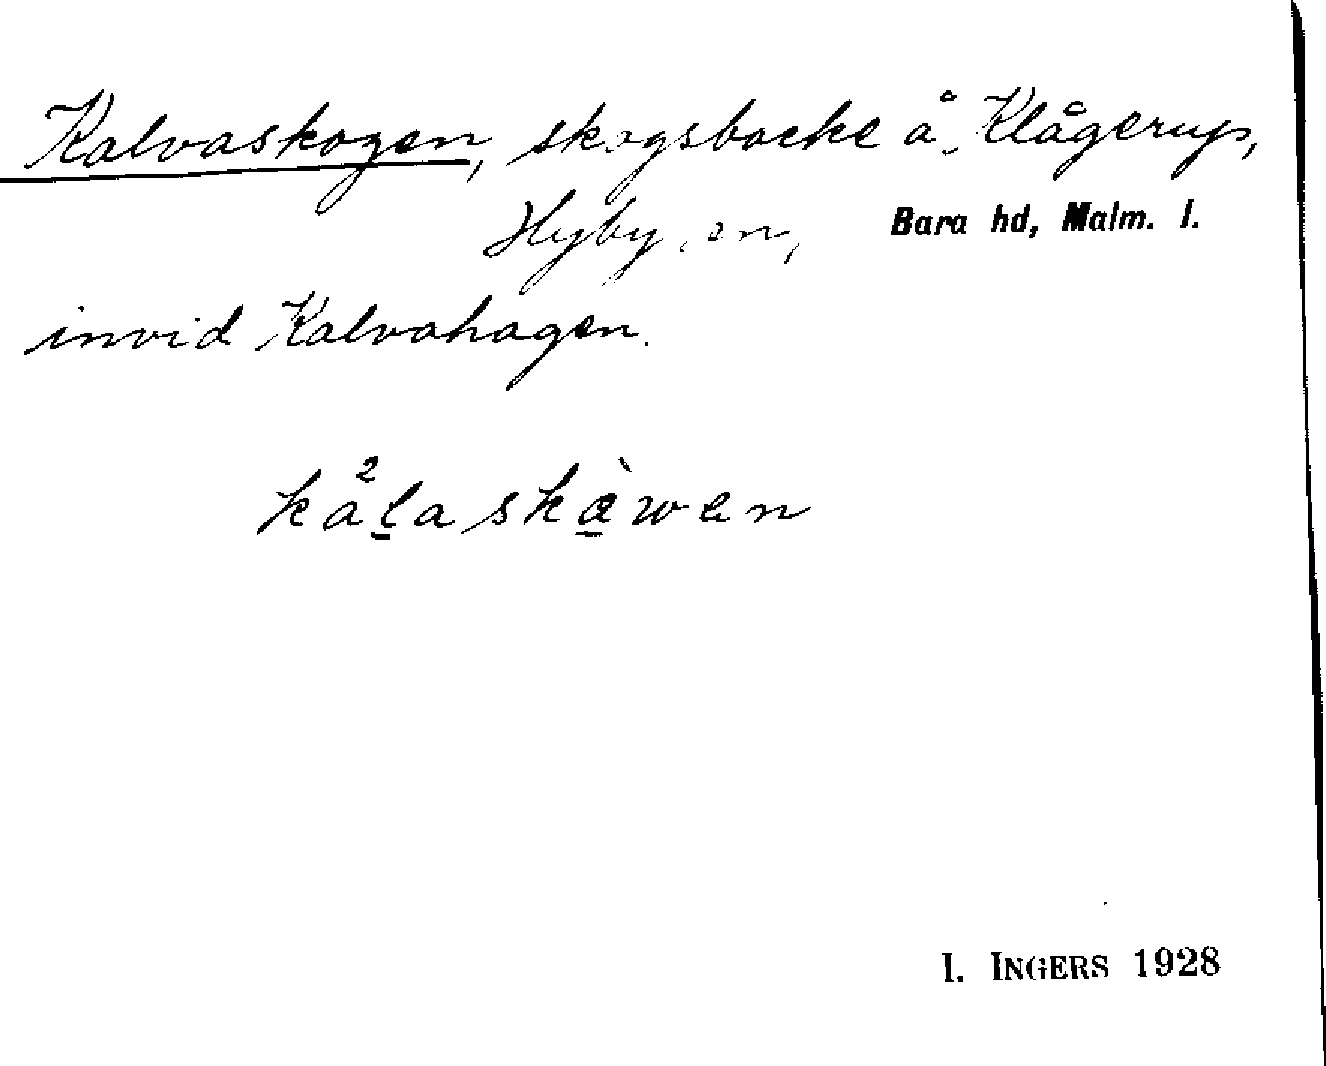 Kalvaskogen, skogsbacke å Klågerup,
Hyby sn, Bara hd, Malm. l.
invid Kalvahagen.
kå²laskàwen
I. INGERS 1928